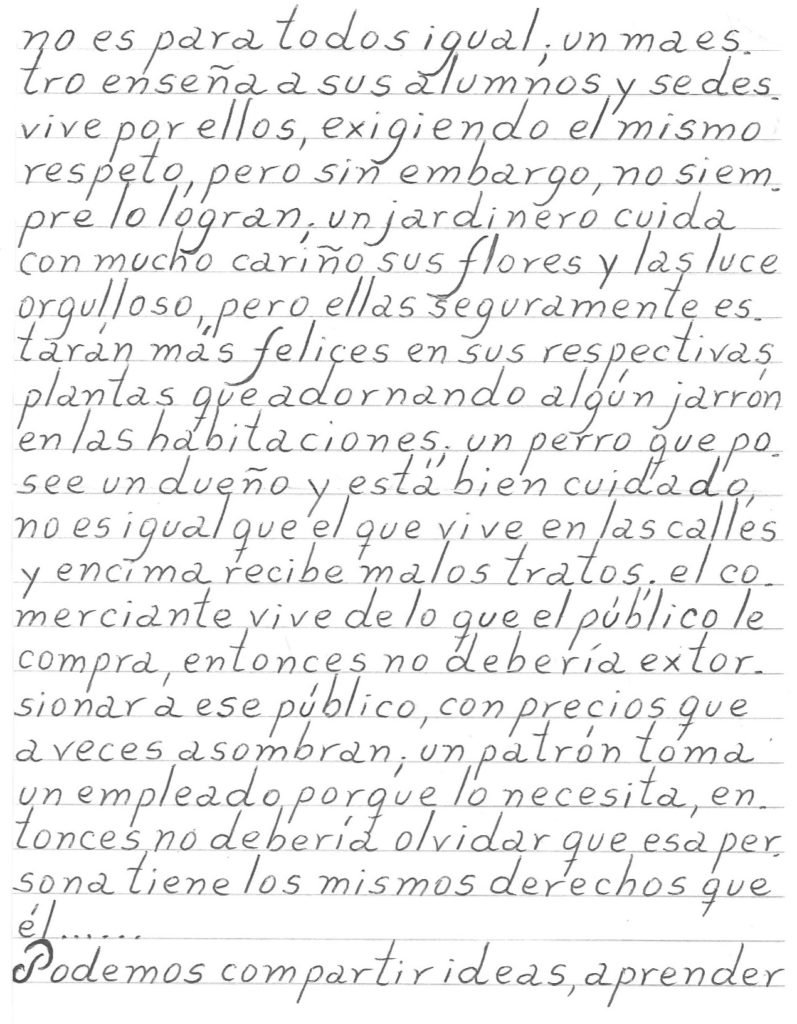 no es para todos igual; un maes-
tro enseña a sus alumnos y se des-
vive por ellos, exigiendo el mismo
respeto, pero sin embargo, no siem-
pre lo logran; un jardinero cuida
con mucho cariño sus flores y las luce
orgulloso, pero ellas seguramente es-
tarán más felices en sus respectivas
plantas que adornando algún jarrón
en las habitaciones; un perro que po-
see un dueño y está "bien cuidado",
no es igual que el que vive en las calles
y encima recibe malos tratos; el co-
merciante vive de lo que el público le
compra, entonces no debería extor-
sionar a ese público, con precios que
a veces asombran; un patrón toma
un empleado porque lo necesita, en-
tonces no debería olvidar que esa per-
sona tiene los mismos derechos que
él......
Podemos compartir ideas, aprender